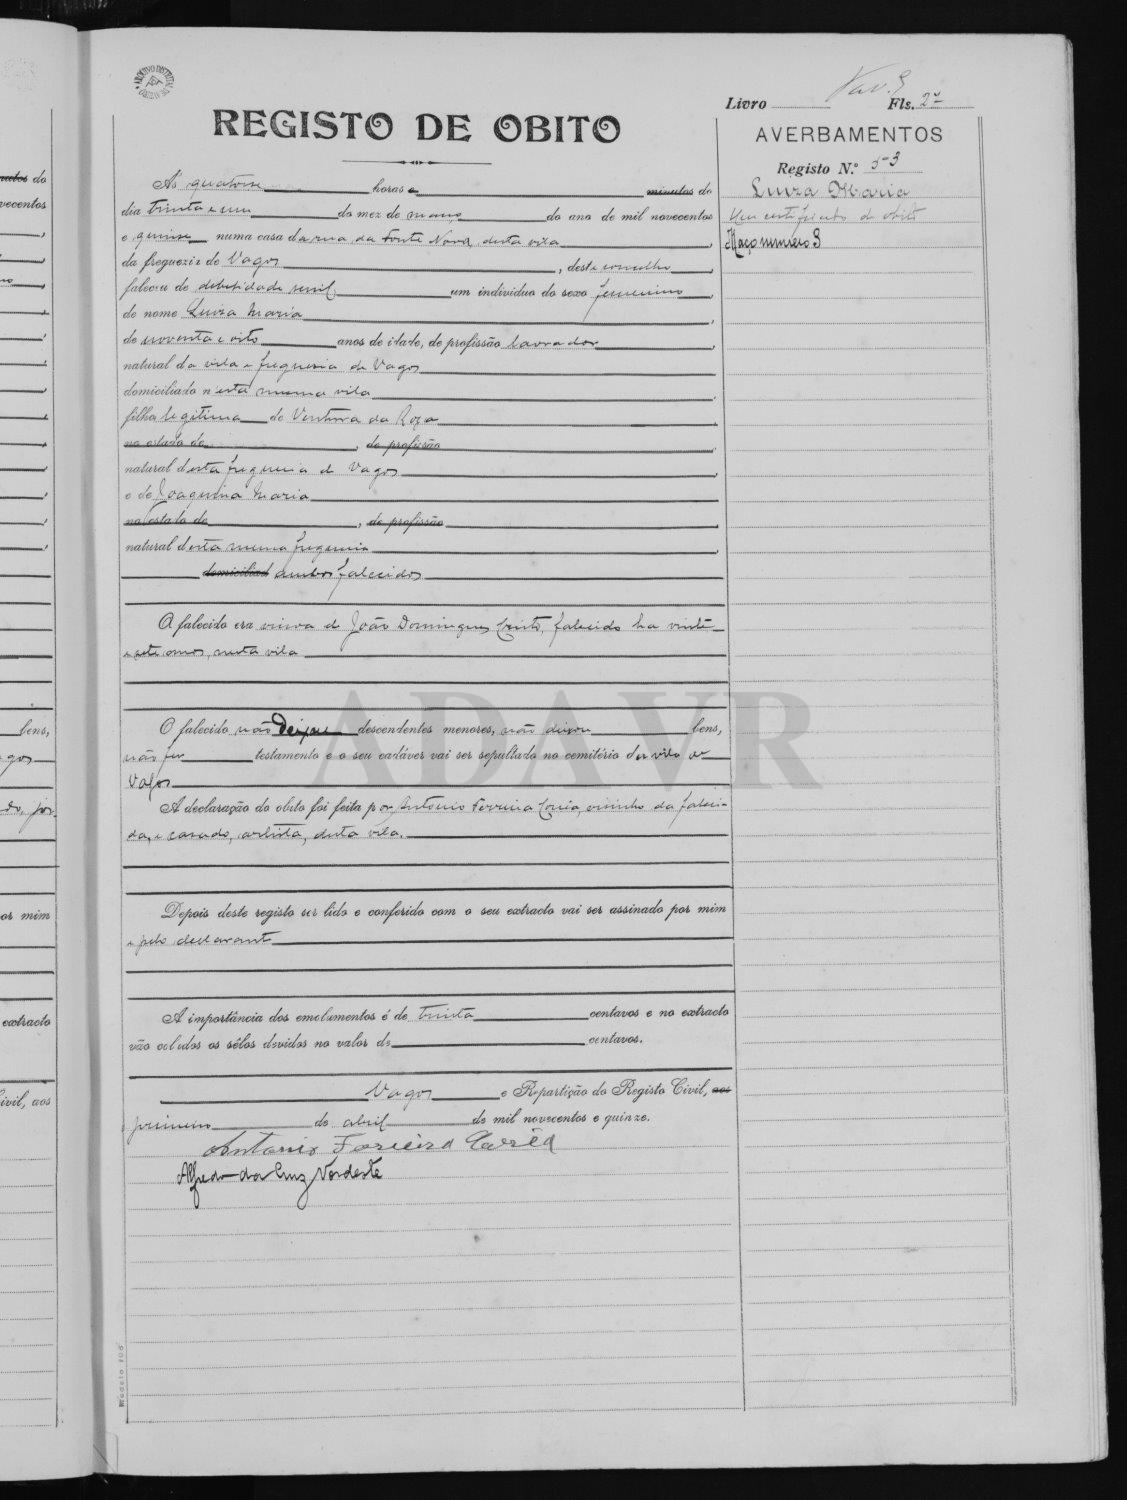 ARQUIVO DISTRITAL DE AVEIRO
Livro Fls. 27
REGISTO DE OBITO
AVERBAMENTOS
Registo N.º 53
Luiza Maria
Um certificado de obito
Maço numero 3
Ás quatorse horas e minutos do
dia trinta e um do mez de março do ano de mil novecentos
e quinse numa casa da rua da Fonte Nova, desta vila,
da freguezia de Vagos, deste concelho,
faleceu de debelidade senil um individuo do sexo femenino,
de nome Luiza Maria,
de noventa e oito anos de idade, de profissão lavrador,
natural da vila e freguesia de Vagos
domiciliado n'esta mesma vila
filha legitima de Ventura da Roza
no estado de, de profissão
natural desta freguesia de Vagos
e de Joaquina Maria
no estado de, de profissão
natural desta mesma freguesia
domiciliad ambos falecidos
O falecido era viuva de João Domingues Cristo, falecido ha vinte
e sete anos, nesta vila
O falecido não Deixou descendentes menores, não deixou bens,
não fez testamento e o seu cadáver vai ser sepultado no cemitério da vila de
Vagos
A declaração do obito foi feita por Antonio Ferreira Correia, visinho da faleci-
da, e casado, artista, desta vila.
Depois deste registo ser lido e conferido com o seu extracto vai ser assinado por mim
e pelo declarante
A importância dos emolumentos é de trinta centavos e no extracto
vão colados os sêlos devidos no valor de centavos.
Vagos e Repartição do Registo Civil, aos
primeiro de abril de mil novecentos e quinze.
Antonio Ferreira Corrêa
Alfredo da Cruz Nordeste
Modelo 106
ADAVR
rutos do
vecentos
bens,
agos
do, por
or mim
extracto
Civil, aos